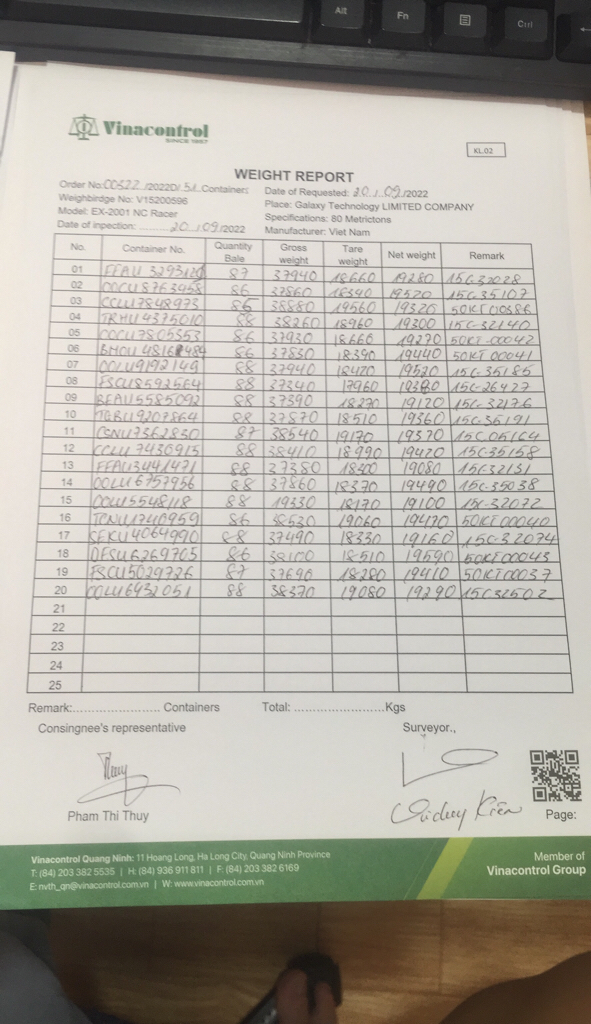 Alt
Fn
Ctrl
Vinacontrol
SINCE 1957
KL.02
WEIGHT REPORT
Order No:00522/2022D/51 Containers Date of Requested: 20/09/2022
Weighbirdge No: V15200596 Place: Galaxy Technology LIMITED COMPANY
Model: EX-2001 NC Racer Specifications: 80 Metrictons
Date of inpection: 20/09/2022 Manufacturer: Viet Nam
No. Container No. Quantity Bale Gross weight Tare weight Net weight Remark
01 87 37940 18660 19280 15C-32028
02 86 37860 18340 19520 15C-35107
03 CCLU7848973 86 38880 19560 19320 50KT00386
04 TRHU4375010 88 38260 18960 19300 15C-32140
05 OOCU7805353 86 37930 18660 19270 50KT-00042
06 86 37830 18390 19440 50KT00041
07 88 37940 18420 19520 15C-35185
08 FSCU8592564 88 37340 17960 15C-26427
09 88 37390 18270 19120 15C-32176
10 88 37870 18510 19360 15C-36191
11 87 38540 19170 19370 15C05164
12 CCLU7430915 88 38410 18990 19420 15C-35158
13 88 18400 19080 15C32131
14 OOLU6757956 88 37860 18370 19490 15C-35038
15 88 18170 19100 15C-32072
16 86 38530 19060 19470 50KT00040
17 SEKU4064990 88 37490 18330 19160 15C-32074
18 DFSU6269705 86 38100 18510 19590 50KT00043
19 FSCU5029726 87 37690 18280 19410 50KT00037
20 OOLU6932051 88 38370 19080 19290 15C32502
21
22
23
24
25
Remark:..................... Containers Total: ...........................Kgs
Consingnee's representative Surveyor.,
Thuy
Pham Thi Thuy Page:
Vinacontrol Quang Ninh: 11 Hoang Long, Ha Long City, Quang Ninh Province
T: (84) 203 382 5535 | H: (84) 936 911 811 | F: (84) 203 382 6169
E: nvth_qn@vinacontrol.com.vn | W: www.vinacontrol.com.vn
Member of
Vinacontrol Group